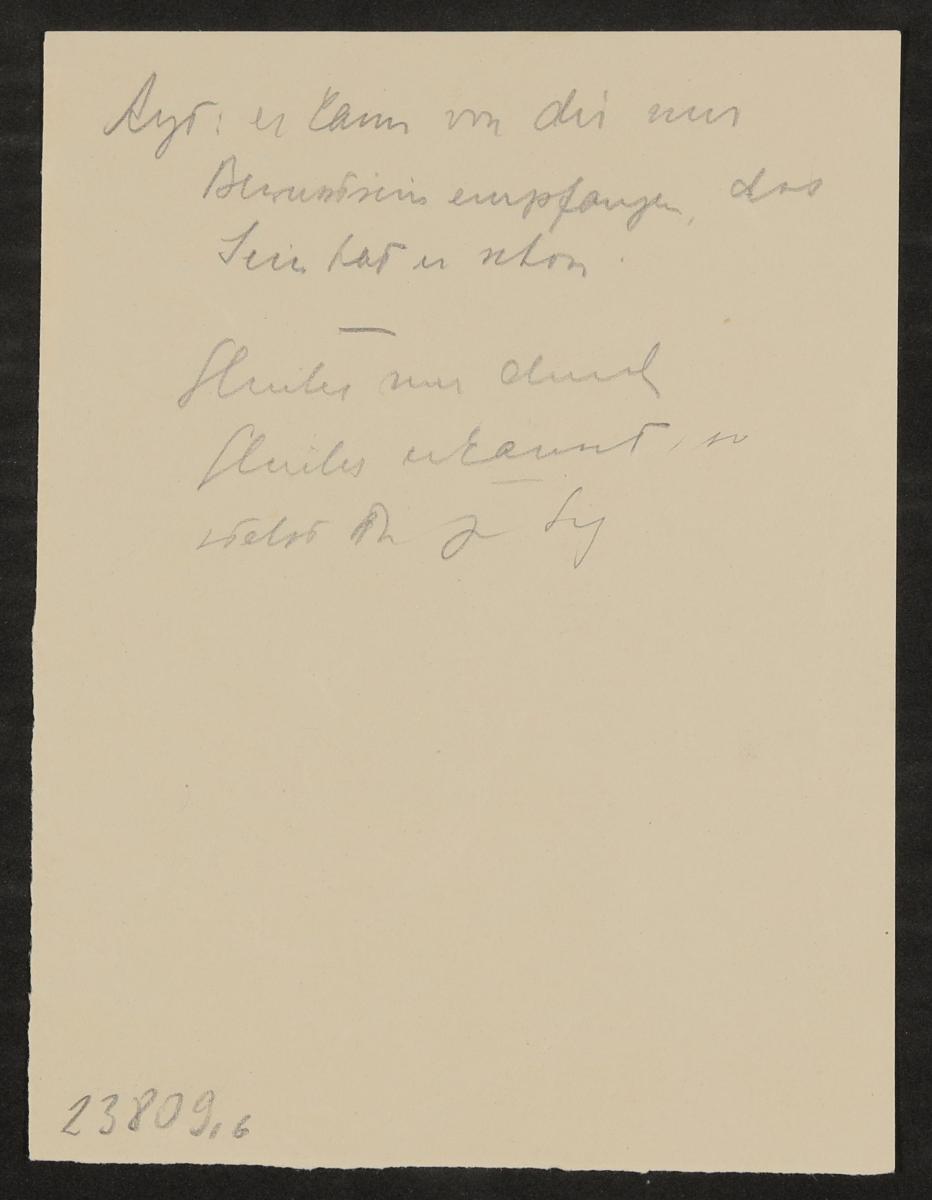 Arzt: er kann von dir nur
Bewusstsein empfangen, das
Sein hat er schon.
Gleiches nur durch
Gleiches erkannt, so
23809,6